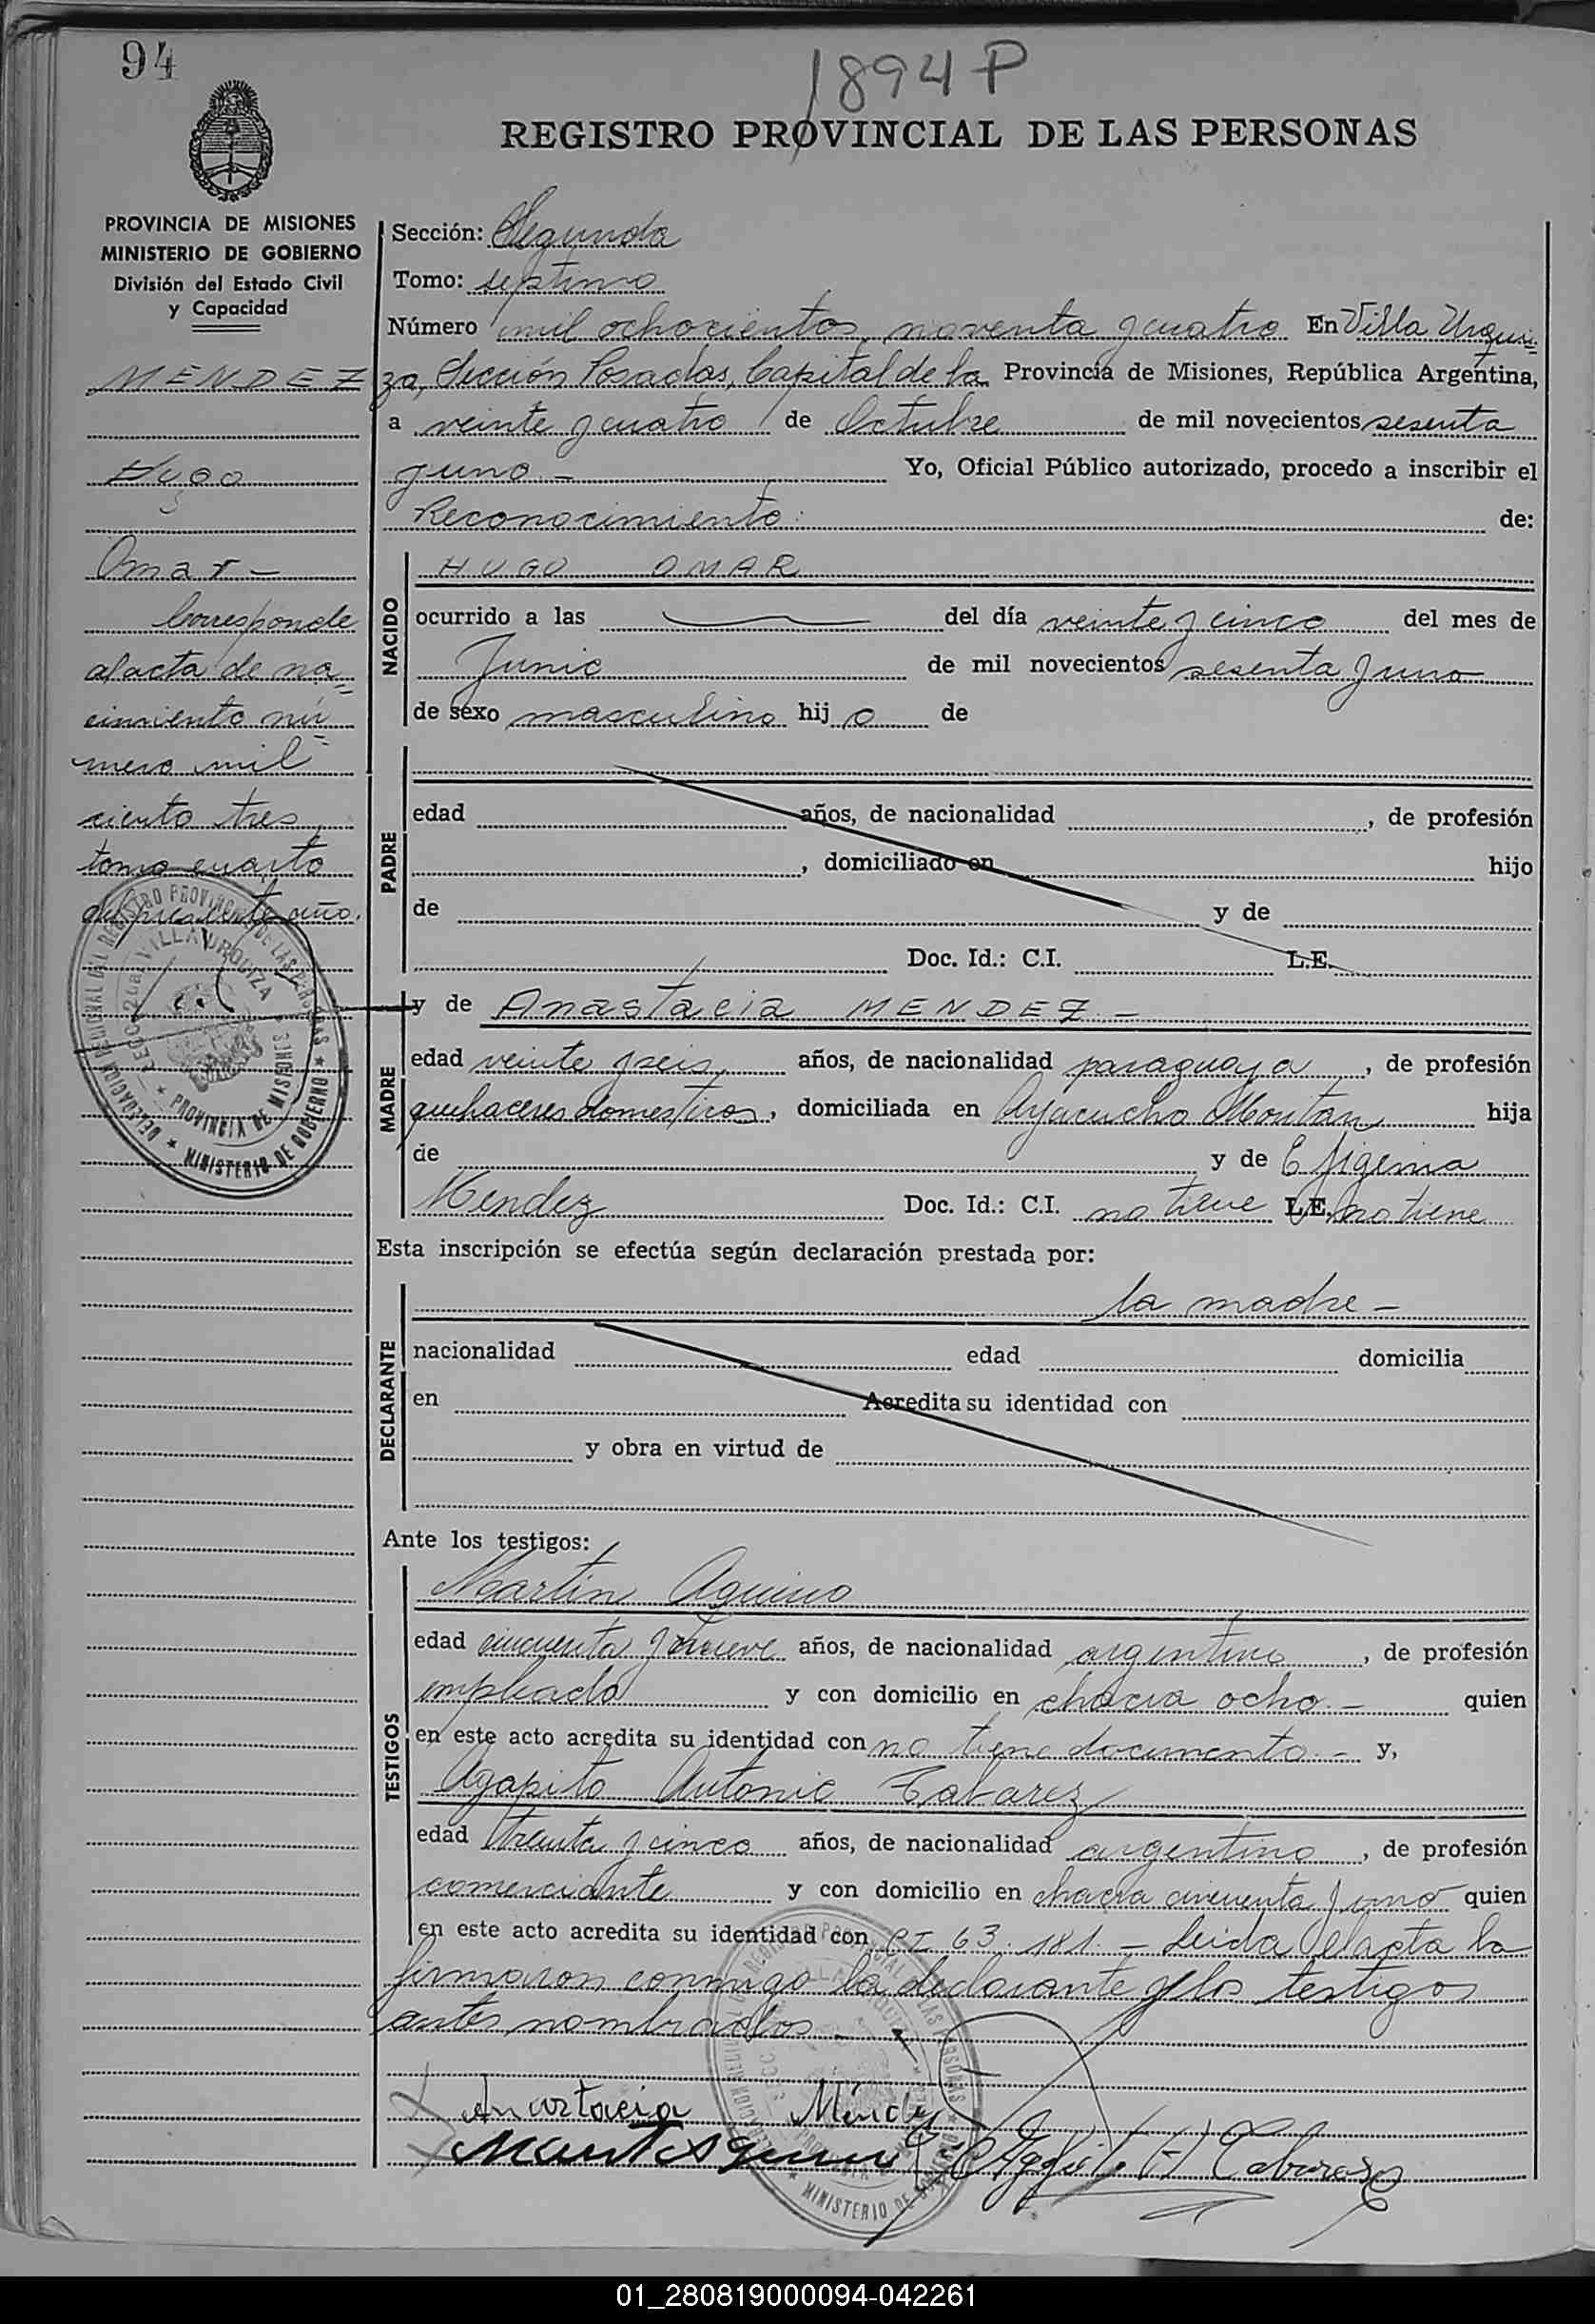 94
1894 P
REGISTRO PROVINCIAL DE LAS PERSONAS
PROVINCIA DE MISIONES
MINISTERIO DE GOBIERNO
División del Estado Civil
y Capacidad
MENDEZ
Hugo
Omar -
Corresponde
al acta de na=
cimiento nú=
mero mil
ciento tres
tomo cuarto
del presente año.
Sección: Segunda
Tomo: septimo
Número mil ochocientos noventa y cuatro En Villa Urqui=
za, Sección Posadas, Capital de la Provincia de Misiones, República Argentina,
a veinte y cuatro de Octubre de mil novecientos sesenta
y uno - Yo, Oficial Público autorizado, procedo a inscribir el
Reconocimiento: de:
NACIDO
HUGO OMAR
ocurrido a las del día veinte y cinco del mes de
Junio de mil novecientos sesenta y uno
de sexo masculino hij o de
PADRE
edad años, de nacionalidad , de profesión
, domiciliado en hijo
de y de
Doc. Id.: C.I. L.E.
MADRE
y de Anastacia MENDEZ -
edad veinte y seis años, de nacionalidad paraguaya , de profesión
quehaceres domesticos, domiciliada en Ayacucho Montan hija
de y de Efigenia
Mendez Doc. Id.: C.I. no tiene L.E. no tiene
Esta inscripción se efectúa según declaración prestada por:
DECLARANTE
la madre -
nacionalidad edad domicilia
en Acredita su identidad con
y obra en virtud de
Ante los testigos:
TESTIGOS
Martín Aquino
edad cincuenta y nueve años, de nacionalidad argentino , de profesión
empleado y con domicilio en chacra ocho - quien
en este acto acredita su identidad con no tiene documento - y,
Agapito Antonio Tabarez
edad treinta y cinco años, de nacionalidad argentino , de profesión
comerciante y con domicilio en chacra cincuenta y uno quien
en este acto acredita su identidad con CI 63.181. - Leida el acta la
firmaron conmigo la declarante y los testigos
antes nombrados -
Anastacia Méndez
01_280819000094-042261